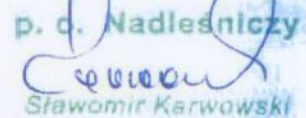 p. o. Nadleśniczy
Sławomir Karwowski